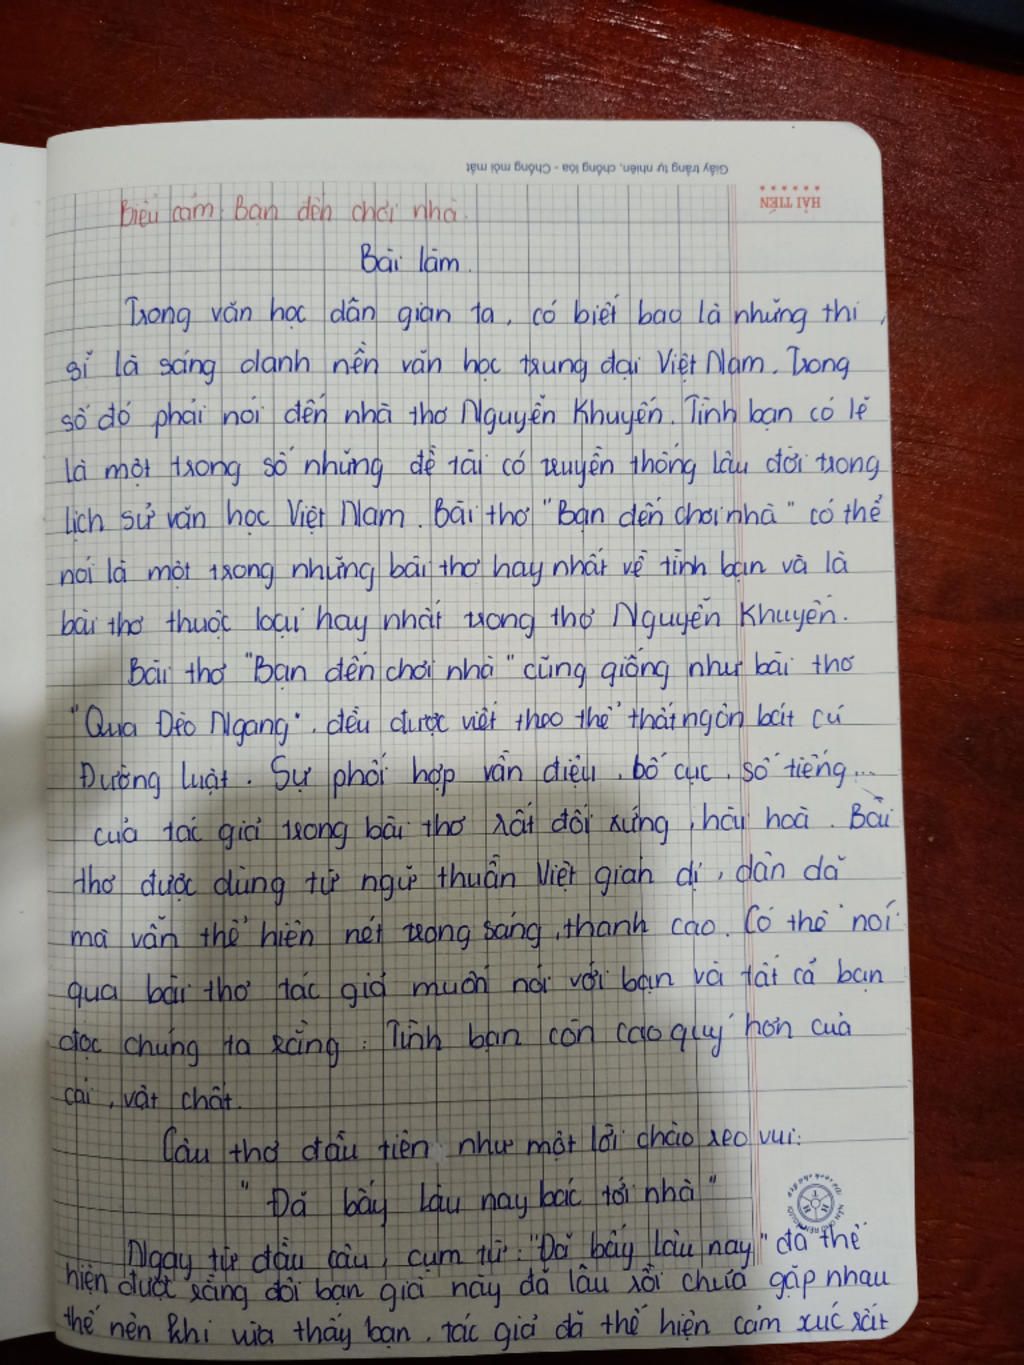 Giấy trắng tự nhiên, chống lóa - Chống mỏi mắt
HẢI TIẾN
Biểu cảm Bạn đến chơi nhà.
Bài làm.
Trong văn học dân gian ta, có biết bao là những thi
sĩ là sáng danh nền văn học trung đại Việt Nam. Trong
số đó phải nói đến nhà thơ Nguyễn Khuyến. Tình bạn có lẽ
là một trong số những đề tài có truyền thống lâu đời trong
lịch sử văn học Việt Nam. Bài thơ "Bạn đến chơi nhà" có thể
nói là một trong những bài thơ hay nhất về tình bạn và là
bài thơ thuộc loại hay nhất trong thơ Nguyễn Khuyến.
Bài thơ "Bạn đến chơi nhà" cũng giống như bài thơ
"Qua Đèo Ngang", đều được viết theo thể thất ngôn bát cú
Đường luật. Sự phối hợp vần điệu, bố cục, số tiếng...
của tác giả trong bài thơ rất đối xứng, hài hoà. Bài
thơ được dùng từ ngữ thuần Việt giản dị, dân dã
mà vẫn thể hiện nét trong sáng, thanh cao. Có thể nói
qua bài thơ tác giả muốn nói với bạn và tất cả bạn
đọc chúng ta rằng: Tình bạn còn cao quý hơn của
cải, vật chất.
Câu thơ đầu tiên như một lời chào reo vui:
"Đã bấy lâu nay bác tới nhà"
Ngay từ đầu câu, cụm từ: "Đã bấy lâu nay" đã thể
hiện được rằng đôi bạn già này đã lâu rồi chưa gặp nhau
thế nên khi vừa thấy bạn, tác giả đã thể hiện cảm xúc rất